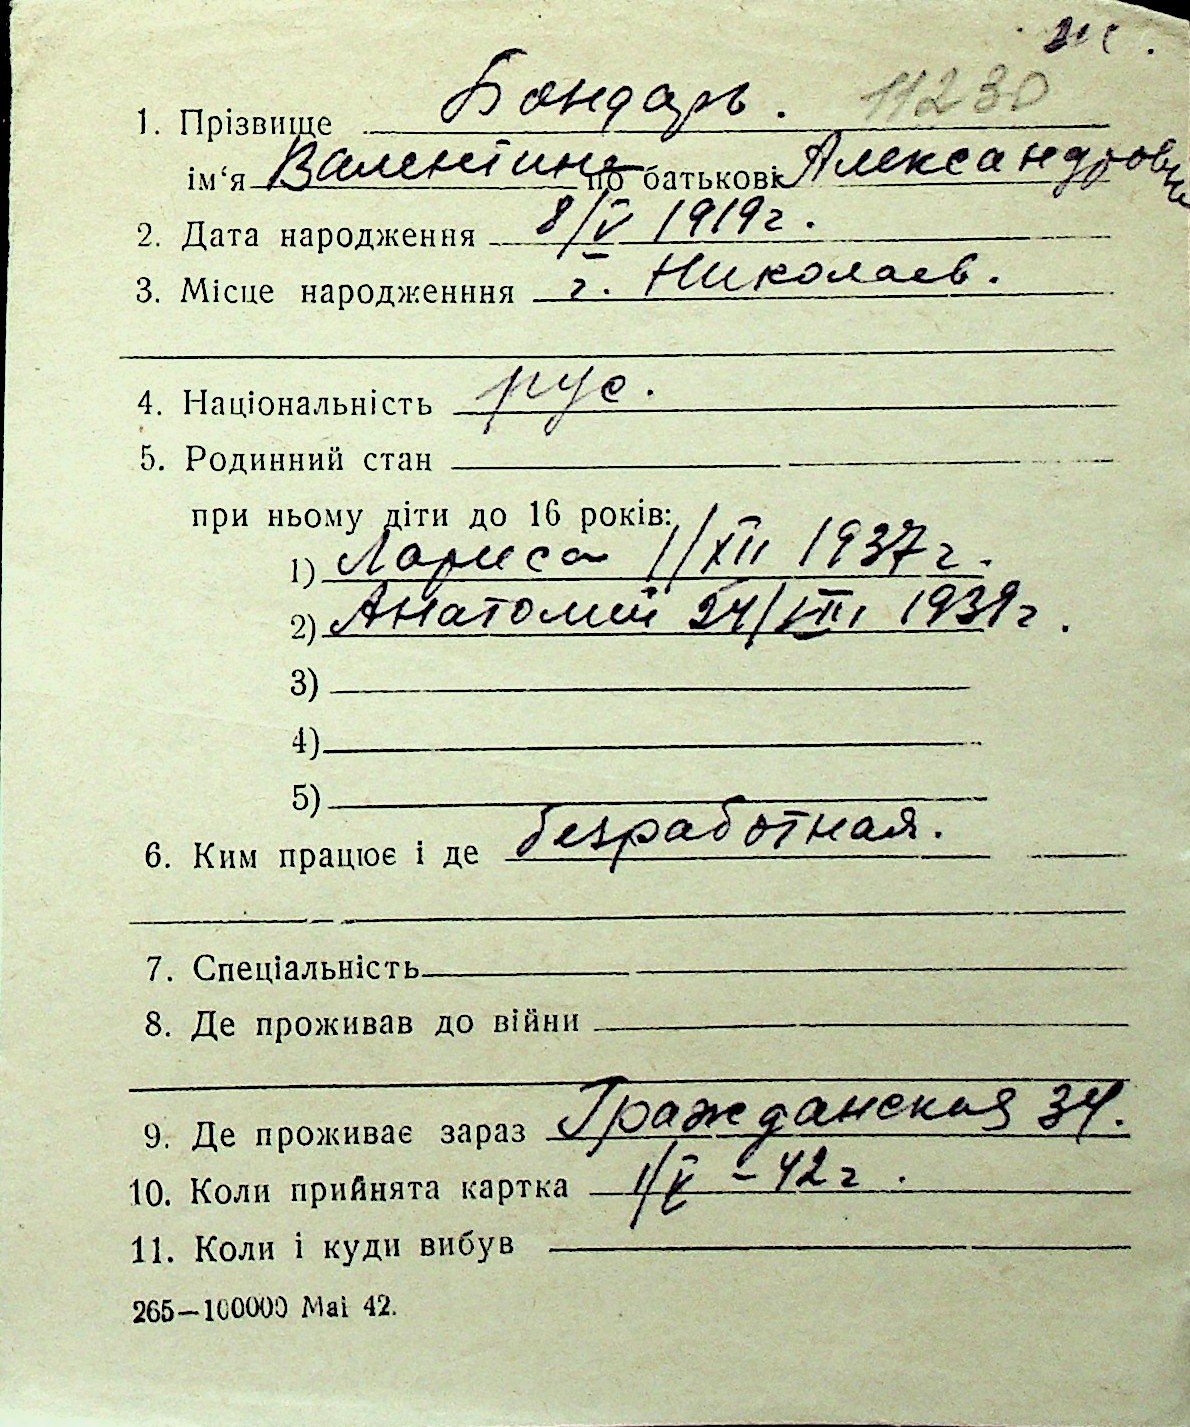 ж.
1. Прізвище Бондарь. 11230
ім'я Валентина по батькові Александровна
2. Дата народження 8/V 1919г.
3. Місце народженння г. Николаев.
4. Національність рус.
5. Родинний стан
при ньому діти до 16 років:
1) Лариса 1/XII 1937г.
2) Анатолий 24/VIII 1939г.
3)
4)
5)
6. Ким працює і де безработная.
7. Спеціальність
8. Де проживав до війни
9. Де проживає зараз Гражданская 34.
10. Коли прийнята картка 1/V – 42г.
11. Коли і куди вибув
265—100000 Mai 42.